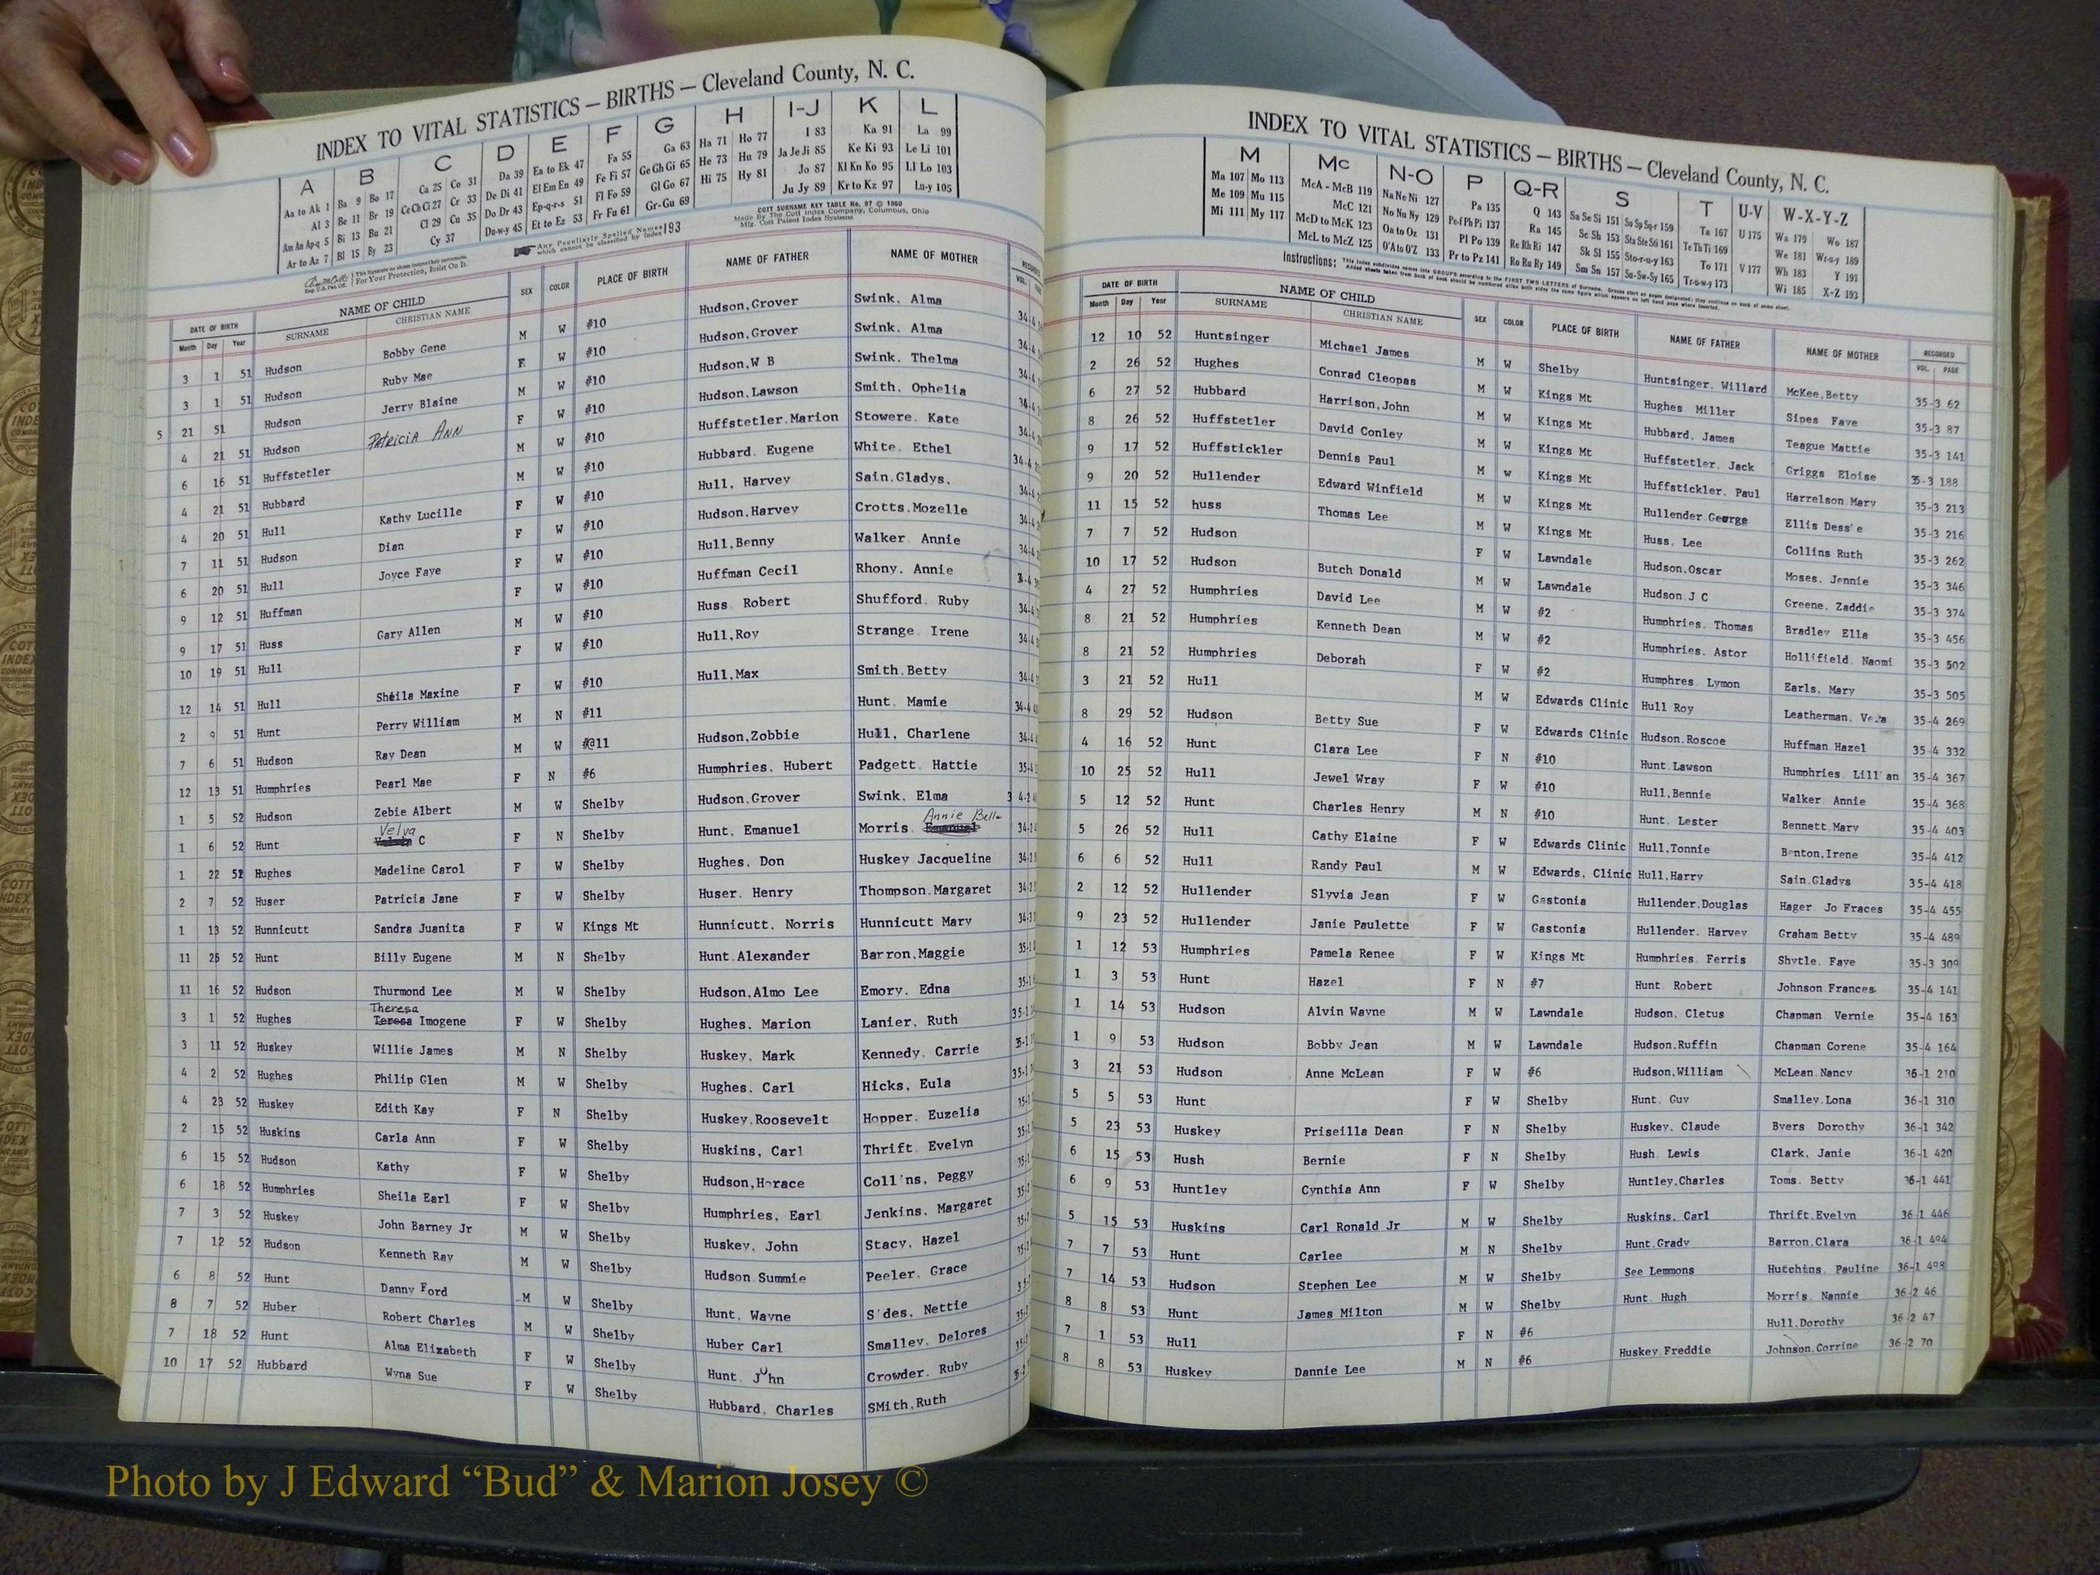 INDEX TO VITAL STATISTICS – BIRTHS – Cleveland County, N. C.
A B C D E F G H I-J K L
Aa to Ak 1 Ba 9 Bo 17 Ca 25 Co 31 Da 39 Ea to Ek 47 Fa 55 Ga 63 Ha 71 Ho 77 I 83 Ka 91 La 99
Al 3 Be 11 Br 19 Ce Ch Ci 27 Cr 33 De Di 41 El Em En 49 Fe Fi 57 Ge Gh Gi 65 He 73 Hu 79 Ja Je Ji 85 Ke Ki 93 Le Li 101
Am An Ap-q 5 Bi 13 Bu 21 Cl 29 Cu 35 Do Dr 43 Ep-q-r-s 51 Fl Fo 59 Gl Go 67 Hi 75 Hy 81 Jo 87 Kl Kn Ko 95 Ll Lo 103
Ar to Az 7 Bl 15 By 23 Cy 37 Du-w-y 45 Et to Ez 53 Fr Fu 61 Gr-Gu 69 Ju Jy 89 Kr to Kz 97 Lu-y 105
COTT SURNAME KEY TABLE No. 97 © 1960
Made By The Cott Index Company, Columbus, Ohio
Mfg. Cott Patent Index Systems
Any Peculiarly Spelled Names which cannot be classified by Index 193
For Your Protection, Insist On It.
DATE OF BIRTH NAME OF CHILD SEX COLOR PLACE OF BIRTH NAME OF FATHER NAME OF MOTHER
Month Day Year SURNAME CHRISTIAN NAME
3 1 51 Hudson Bobby Gene M W #10 Hudson,Grover Swink. Alma
3 1 51 Hudson Ruby Mae F W #10 Hudson,Grover Swink. Alma
5 21 51 Hudson Jerry Blaine M W #10 Hudson,W B Swink. Thelma
4 21 51 Hudson Patricia Ann F W #10 Hudson,Lawson Smith. Ophelia
6 16 51 Huffstetler M W #10 Huffstetler,Marion Stowere. Kate
4 21 51 Hubbard M W #10 Hubbard. Eugene White. Ethel
4 20 51 Hull Kathy Lucille F W #10 Hull, Harvey Sain.Gladys,
7 11 51 Hudson Dian F W #10 Hudson,Harvey Crotts.Mozelle
6 20 51 Hull Joyce Faye F W #10 Hull,Benny Walker Annie
9 12 51 Huffman F W #10 Huffman Cecil Rhony. Annie
9 17 51 Huss Gary Allen M W #10 Huss Robert Shufford. Ruby
10 19 51 Hull F W #10 Hull,Roy Strange Irene
12 14 51 Hull Sheila Maxine F W #10 Hull,Max Smith.Betty
2 9 51 Hunt Perry William M N #11 Hunt. Mamie
7 6 51 Hudson Ray Dean M W #@11 Hudson,Zobbie Hull, Charlene
12 13 51 Humphries Pearl Mae F N #6 Humphries. Hubert Padgett. Hattie
1 5 52 Hudson Zebie Albert M W Shelby Hudson,Grover Swink. Elma
1 6 52 Hunt Velva C F N Shelby Hunt. Emanuel Morris. Annie Belle
1 22 52 Hughes Madeline Carol F W Shelby Hughes, Don Huskey Jacqueline
2 7 52 Huser Patricia Jane F W Shelby Huser. Henry Thompson.Margaret
1 13 52 Hunnicutt Sandra Juanita F W Kings Mt Hunnicutt, Norris Hunnicutt Mary
11 25 52 Hunt Billy Eugene M N Shelby Hunt.Alexander Barron,Maggie
11 16 52 Hudson Thurmond Lee M W Shelby Hudson,Almo Lee Emory. Edna
3 1 52 Hughes Theresa Teresa Imogene F W Shelby Hughes, Marion Lanier, Ruth
3 11 52 Huskey Willie James M N Shelby Huskey, Mark Kennedy. Carrie
4 2 52 Hughes Philip Glen M W Shelby Hughes, Carl Hicks, Eula
4 23 52 Huskey Edith Kay F N Shelby Huskey,Roosevelt Hopper. Euzelia
2 15 52 Huskins Carla Ann F W Shelby Huskins, Carl Thrift. Evelyn
6 15 52 Hudson Kathy F W Shelby Hudson,Horace Collins, Peggy
6 18 52 Humphries Sheila Earl F W Shelby Humphries, Earl Jenkins. Margaret
7 3 52 Huskey John Barney Jr M W Shelby Huskey, John Stacy, Hazel
7 12 52 Hudson Kenneth Ray M W Shelby Hudson.Summie Peeler. Grace
6 8 52 Hunt Danny Ford M W Shelby Hunt, Wayne Sides, Nettie
8 7 52 Huber Robert Charles M W Shelby Huber Carl Smalley. Delores
7 18 52 Hunt Alma Elizabeth F W Shelby Hunt. John Crowder. Ruby
10 17 52 Hubbard Wyna Sue F W Shelby Hubbard. Charles SMith,Ruth
INDEX TO VITAL STATISTICS – BIRTHS – Cleveland County, N. C.
M Mc N-O P Q-R S T U-V W-X-Y-Z
Ma 107 Mo 113 McA - McB 119 Na Ne Ni 127 Pa 135 Q 143 Sa Se Si 151 So Sp Sq-r 159 Ta 167 U 175 Wa 179 Wo 187
Me 109 Mu 115 McC 121 No Nu Ny 129 Pe-f Ph Pi 137 Ra 145 Sc Sh 153 Sta Ste Sti 161 Te Th Ti 169 We 181 Wr-u-y 189
Mi 111 My 117 McD to McK 123 Oa to Oz 131 Pl Po 139 Re Rh Ri 147 Sk Sl 155 Sto-r-u-y 163 To 171 V 177 Wh 183 Y 191
McL to McZ 125 O'A to O'Z 133 Pr to Pz 141 Ro Ru Ry 149 Sm Sn 157 Su-Sw-Sy 165 Tr-u-w-y 173 Wi 185 X-Z 193
Instructions: This index subdivides names into GROUPS according to the FIRST TWO LETTERS of Surname.
DATE OF BIRTH NAME OF CHILD SEX COLOR PLACE OF BIRTH NAME OF FATHER NAME OF MOTHER RECORDED
Month Day Year SURNAME CHRISTIAN NAME VOL. PAGE
12 10 52 Huntsinger Michael James M W Shelby Huntsinger. Willard McKee,Betty 35-3 62
2 26 52 Hughes Conrad Cleopas M W Kings Mt Hughes Miller Sipes Faye 35-3 87
6 27 52 Hubbard Harrison,John M W Kings Mt Hubbard. James Teague Mattie 35-3 141
8 26 52 Huffstetler David Conley M W Kings Mt Huffstetler. Jack Griggs Eloise 35-3 188
9 17 52 Huffstickler Dennis Paul M W Kings Mt Huffstickler. Paul Harrelson.Mary 35-3 213
9 20 52 Hullender Edward Winfield M W Kings Mt Hullender George Ellis Dess'e 35-3 216
11 15 52 huss Thomas Lee M W Kings Mt Huss. Lee Collins Ruth 35-3 262
7 7 52 Hudson F W Lawndale Hudson,Oscar Moses. Jennie 35-3 346
10 17 52 Hudson Butch Donald M W Lawndale Hudson.J C Greene. Zaddie 35-3 374
4 27 52 Humphries David Lee M W #2 Humphries. Thomas Bradley Ella 35-3 456
8 21 52 Humphries Kenneth Dean M W #2 Humphries. Astor Hollifield. Naomi 35-3 502
8 21 52 Humphries Deborah F W #2 Humphres Lymon Earls. Mary 35-3 505
3 21 52 Hull M W Edwards Clinic Hull Roy Leatherman. 35-4 269
8 29 52 Hudson Betty Sue F W Edwards Clinic Hudson.Roscoe Huffman.Hazel 35-4 332
4 16 52 Hunt Clara Lee F N #10 Hunt.Lawson Humphries Lill'an 35-4 367
10 25 52 Hull Jewel Wray F W #10 Hull,Bennie Walker Annie 35-4 368
5 12 52 Hunt Charles Henry M N #10 Hunt. Lester Bennett.Mary 35-4 403
5 26 52 Hull Cathy Elaine F W Edwards Clinic Hull,Tonnie Benton,Irene 35-4 412
6 6 52 Hull Randy Paul M W Edwards, Clinic Hull,Harry Sain.Gladys 35-4 418
2 12 52 Hullender Slyvia Jean F W Gastonia Hullender.Douglas Hager Jo Fraces 35-4 455
9 23 52 Hullender Janie Paulette F W Gastonia Hullender. Harvey Graham Betty 35-4 489
1 12 53 Humphries Pamela Renee F W Kings Mt Humphries. Ferris Shytle. Faye 35-3 309
1 3 53 Hunt Hazel F N #7 Hunt Robert Johnson Frances. 35-4 141
1 14 53 Hudson Alvin Wayne M W Lawndale Hudson. Cletus Chapman. Vernie 35-4 163
1 9 53 Hudson Bobby Jean M W Lawndale Hudson,Ruffin Chapman Corene 35-4 164
3 21 53 Hudson Anne McLean F W #6 Hudson,William McLean.Nancy 36-1 210
5 5 53 Hunt F W Shelby Hunt. Guy Smalley.Lona 36-1 310
5 23 53 Huskey Priseilla Dean F N Shelby Huskey. Claude Byers Dorothy 36-1 342
6 15 53 Hush Bernie F N Shelby Hush. Lewis Clark. Janie 36-1 420
6 9 53 Huntley Cynthia Ann F W Shelby Huntley,Charles Toms. Betty 36-1 441
5 15 53 Huskins Carl Ronald Jr M W Shelby Huskins. Carl Thrift.Evelyn 36-1 446
7 7 53 Hunt Carlee M N Shelby Hunt.Grady Barron.Clara 36-1 494
7 14 53 Hudson Stephen Lee M W Shelby See Lemmons Hutchins. Pauline 36-1 498
8 8 53 Hunt James Milton M W Shelby Hunt Hugh Morris. Nannie 36-2 46
7 1 53 Hull F N #6 Hull.Dorothy 36-2 47
8 8 53 Huskey Dannie Lee M N #6 Huskey Freddie Johnson.Corrine 36-2 70
Photo by J Edward “Bud” & Marion Josey ©